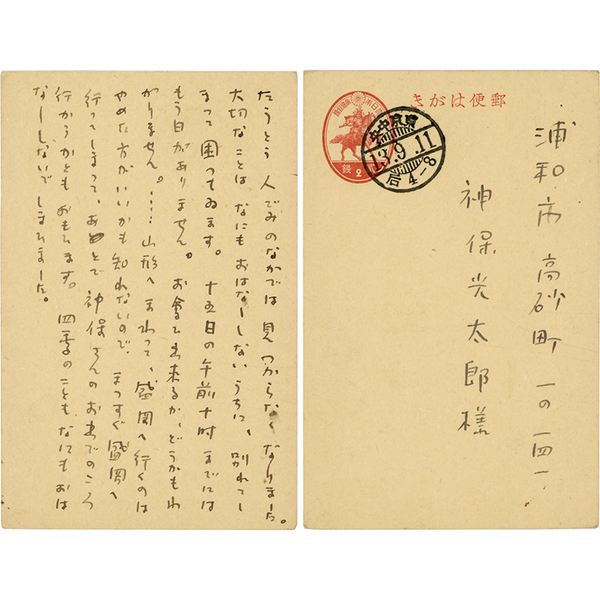 たうとう人でみのなかでは見つからなくなりました。
大切なことはなにもおはなししないうちに、別れてし
まって困ってゐます。十五日の午前十時までには
もう日がありません。お會ひ出来るか、どうかもわ
かりません。……山形へまわって、盛岡へ行くのは
やめた方がいいかも知れないので、まつすぐ盛岡へ
行ってしまって、あとで神保さんのおいでのころ
行かうかともおもひます。四季のこともなにもおは
なししないでしまひました。
郵便はがき
大日本帝國郵便
2
銭
東京中央
13.9.11
后4-8
浦和市高砂町一の一四一
神保光太郎様